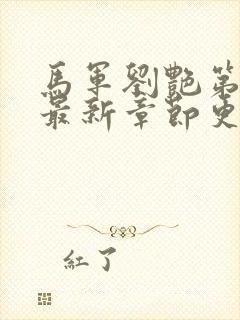 馬軍劉艷第
最新章節更
紅了